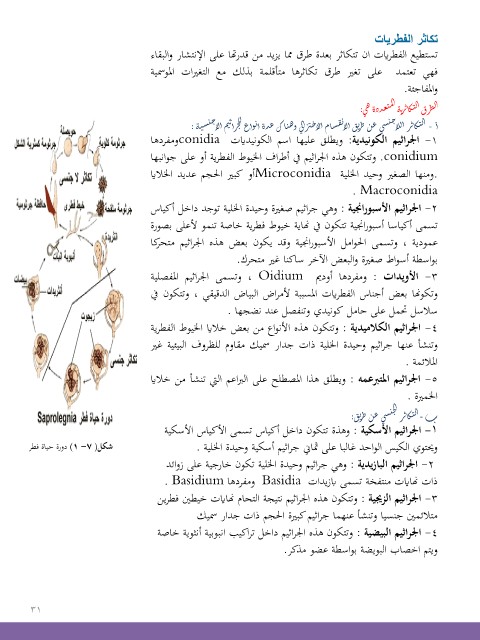 تكاثر الفطريات
تستطيع الفطريات ان تتكاثر بعدة طرق مما يزيد من قدرتها على الإنتشار والبقاء
فهي تعتمد على تغير طرق تكاثرها متأقلمة بذلك مع التغيرات الموسمية
والمفاجئة.
الطرق التكاثرية المتعددة هي:
أ - التكاثر اللاجنسي عن طريق الانقسام الاختزالي وهناك عدة انواع للجراثيم الاجنسية :
١- الجراثيم الكونيدية: ويطلق عليها اسم الكونيديات conidia ومفردها
conidium. وتتكون هذه الجراثيم في أطراف الخيوط الفطرية أو على جوانبها
.ومنها الصغير وحيد الخلية Microconidia أو كبير الحجم عديد الخلايا
Macroconidia .
٢- الجراثيم الأسبورانجية : وهي جراثيم صغيرة وحيدة الخلية توجد داخل أكياس
تسمى أكياسا أسبورانجية تتكون في نهاية خيوط فطرية خاصة تنمو لأعلى بصورة
عمودية ، وتسمى الحوامل الأسبورانجية وقد يكون بعض هذه الجراثيم متحركا
بواسطة أسواط صغيرة والبعض الآخر ساكنا غير متحرك.
٣- الأويدات : ومفردها أوديم Oidium ، وتسمى الجراثيم المفصلية
وتكونها بعض أجناس الفطريات المسببة لأمراض البياض الدقيقي ، وتتكون في
سلاسل تحمل على حامل كونيدي وتنفصل عند نضجها .
٤- الجراثيم الكلاميدية : وتتكون هذه الأنواع من بعض خلايا الخيوط الفطرية
وتنشأ عنها جراثيم وحيدة الخلية ذات جدار سميك مقاوم للظروف البيئية غير
الملائمة .
٥- الجراثيم المتبرعمه : ويطلق هذا المصطلح على البراعم التي تنشأ من خلايا
الخميرة .
ب - التكاثر الجنسي عن طريق:
أ- الجراثيم الأسكية : وهذة تتكون داخل أكياس تسمى الأكياس الأسكية
ويحتوي الكيس الواحد غالبا على ثماني جراثيم أسكية وحيدة الخلية .
٢- الجراثيم البازيدية : وهي جراثيم وحيدة الخلية تكون خارجية على زوائد
ذات نهايات منتفخة تسمى بازيدات Basidia ومفردها Basidium .
٣- الجراثيم الزيجية : وتتكون هذه الجراثيم نتيجة التحام نهايات خيطين فطرين
متلائمين جنسيا وتنشأ عنهما جراثيم كبيرة الحجم ذات جدار سميك
٤- الجراثيم البيضية : وتتكون هذه الجراثيم داخل تراكيب انبوبية أنثوية خاصة
ويتم اخصاب البويضة بواسطة عضو مذكر.
حوصلة
جرثومة كلوية
جرثومة كمثرية الشكل
تكاثر لا جنسى
حافظة جرثومية
خيط فطرى
جرثومة متحفظة
أنثريدة
أنبوبة انبات
بيضات
أنثريدات
زيجوت
تكاثر جنسى
دورة حياة فطر Saprolegnia
شكل( ٧- ١) دورة حياة فطر
٣١